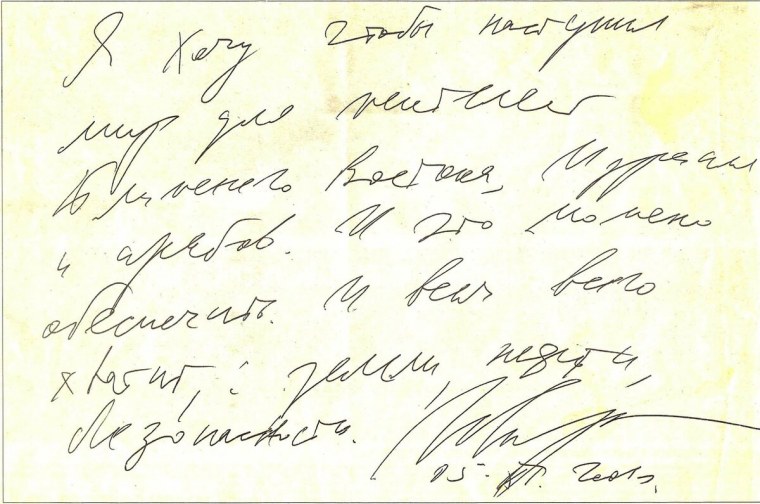 Я хочу чтобы наступил
мир для
Ближнего Востока, Израиля
и арабов. И это можно
обеспечить. И всем всего
хватит, : земли, нефти,
безопасности.